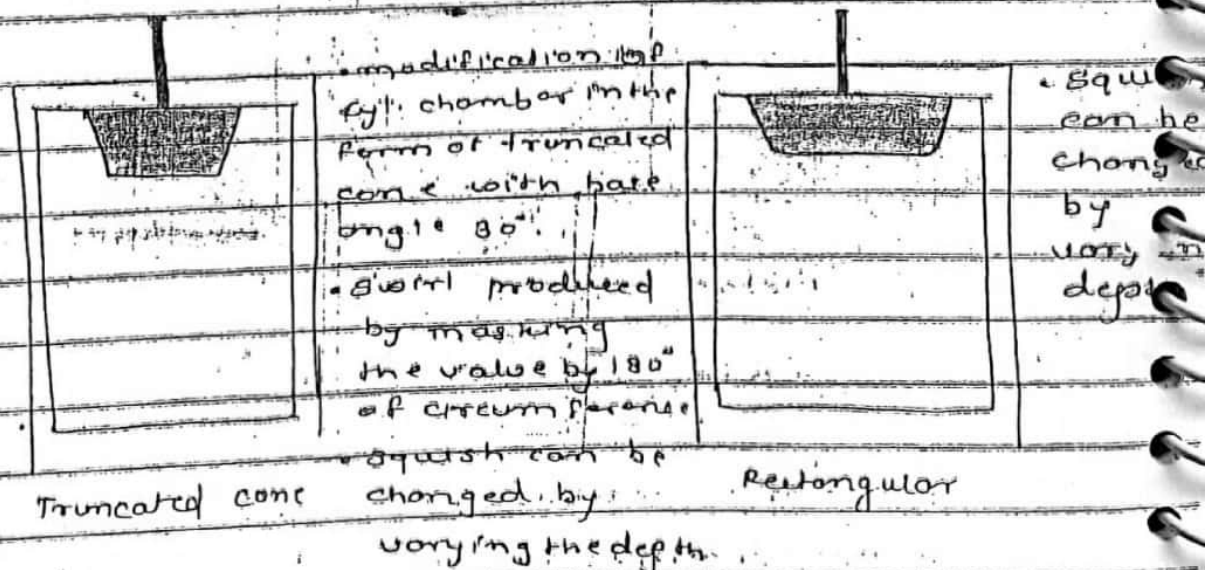 • modification of
cyl. chamber in the
form of truncated
cone with base
angle 80°.
• swirl produced
by masking
the value by 180°
of circumference
• squish can be
changed by
varying the depth
Truncated cone
Rectangular
• squi
can be
changed
by
vary in
depth